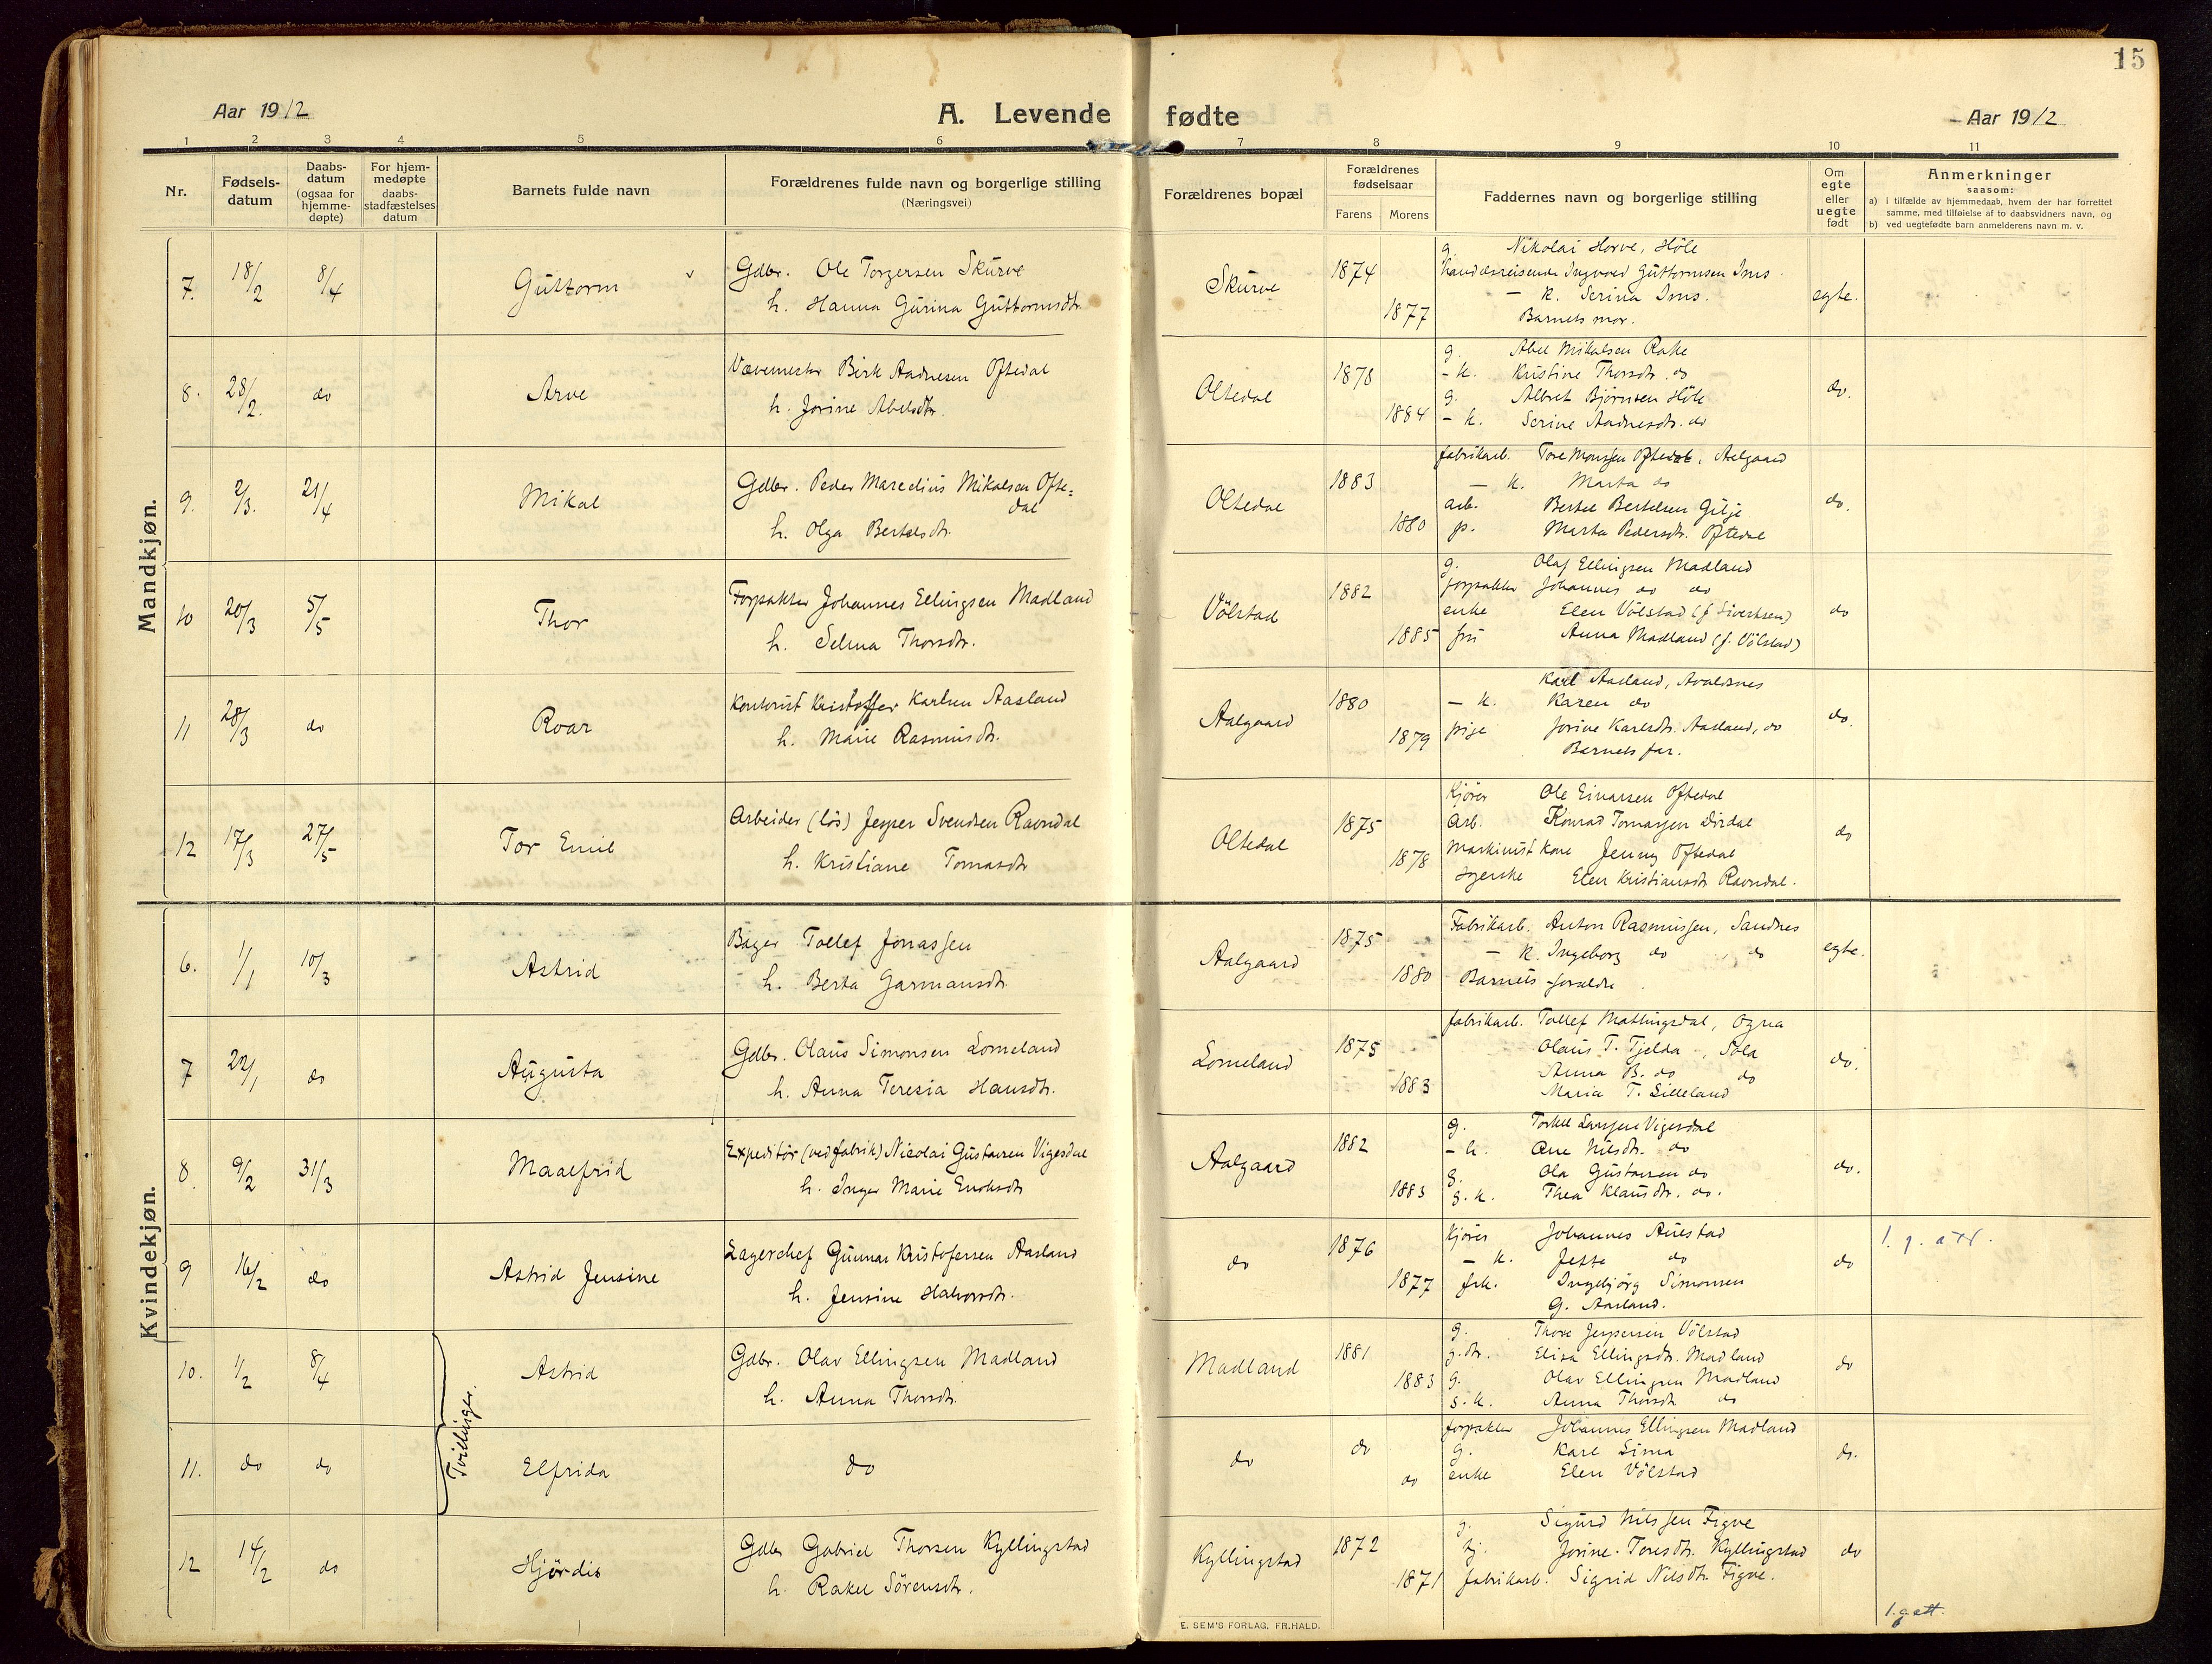 15
Aar 1912
A. Levende fødte
Aar 1912
1 2 3 4 5 6 7 8 9 10 11
Nr.
Fødsels-
datum
Daabs-
datum
(ogsaa for
hjemme-
døpte)
For hjem-
medøpte
daabs-
stadfæstelses
datum
Barnets fulde navn
Forældrenes fulde navn og borgerlige stilling
(Næringsvei)
Forældrenes bopæl
Forældrenes
fødselsaar
Farens Morens
Faddernes navn og borgerlige stilling
Om
egte
eller
uegte
født
Anmerkninger
saasom:
a) i tilfælde av hjemmedaab, hvem der har forrettet
samme, med tilføielse af to daabsvidners navn, og
b) ved uegtefødte barn anmelderens navn m. v.
Mandkjøn.
7. 18/2 8/4 Guttorm
Gdbr. Ole Torgersen Skurve
h. Hanna Gurina Guttormsdtr.
Skurve 1874 1877
g. Nikolai Horve, Höle
Handelsreisende Ingvald Guttormsen Ims
— k. Serina Ims.
Barnets mor.
egte.
8. 28/2. do Arve
Vævemester Birk Aadnesen Oftedal
h. Jorine Abelsdtr.
Oltedal 1878 1884
g. Abel Mikalsen Rake
- k. Kristine Thorsdtr. do
g. Albret Björnsen Höle
- k. Serine Aadnesdtr. do
do.
9. 2/3. 21/4 Mikal
Gdbr. Peder Marcelius Mikalsen Ofte=
dal
h. Olga Bertelsdtr.
Oltedal 1883 1880
fabrikarb. Tore Monsen Oftedal, Aalgaard
— k. Marta do
arb. Bertel Bertelsen Gilje
p. Marta Pedersdtr. Oftedal
do.
10 20/3 5/5 Thor
Forpakter Johannes Ellingsen Madland
h. Selma Thorsdtr.
Völstad 1882 1885
g. Olaf Ellingsen Madland
forpakter Johannes do do
enke Elen Völstad (f. Sivertsen)
fru Anna Madland (f. Völstad)
do
11 28/3 do Roar
Kontorist Kristoffer Karlsen Aasland
h. Marie Rasmusdtr.
Aalgaard 1880 1879
Karl Aasland, Avaldsnes
— k. Karen do
pige Jorine Karlsdtr. Aasland, do
Barnets far.
do.
12 17/3 27/5 Tor Emil
Arbeider (løs) Jesper Svendsen Ravndal
h. Kristiane Tomasdtr
Oltedal 1875 1878
Kjører Ole Einarsen Oftedal
Arb. Konrad Tomassen Dirdal
Maskinist kone Jenny Oftedal
Elen Kristiansdtr Ravndal.
do
Kvindekjøn.
6. 1/1 10/3 Astrid
Bager Tollef Jonassen
h. Berta Garmansdtr.
Aalgaard 1875 1880
Fabrikarb. Anton Rasmussen, Sandnes
— k. Ingeborg do do
Barnets foreldre
egte.
7 22/1 do Augusta
Gdbr. Olaus Simonsen Lomeland
h. Anna Teresia Hansdtr.
Lomeland 1875 1883
fabrikarb. Tollef Matningsdal, Ogna
Olaus T. Tjelda, Sola
Anna B. do do
Maria T. Lilleland
do.
8 9/2 31/3 Maalfrid
Expeditör (ved fabrik) Nicolai Gustavsen Vigesdal
h. Inger Marie Eriksdtr
Aalgaard 1882 1883
g. Torkel Larssen Vigesdal
- k. Ane Nilsdtr. do
g. Ola Gustavsen do
g. k. Thea Klausdtr. do.
do.
9 16/2 do Astrid Jensine
Lagerchef Gunnar Kristofersen Aasland
h. Jensine Halvorsdtr.
do 1876 1877
Kjører Johannes Auestad
— k. Jette do
frk. Ingebjörg Simonsen
G. Aasland.
do
1. g. att.
Tvillinger.
10. 1/2 8/4 Astrid
Gdbr. Olav Ellingsen Madland
h. Anna Thorsdtr.
Madland 1881 1883
g. Thore Jespersen Völstad
g. dtr. Elisa Ellingsdtr. Madland
g. Olav Ellingsen Madland
g. k. Anna Thorsdtr do
do
11. do do Elfrida
do
do do do
forpakter Johannes Ellingsen Madland
g. Karl Lima
enke Elen Völstad
do.
12 14/2 do Hjördis
Gdbr Gabriel Thorsen Kyllingstad
h. Rakel Sörensdtr.
Kyllingstad 1872 1871
g. Sigurd Nilssen Figve
Jorine Toresdtr. Kyllingstad
fabrikarb. Sigrid Nilsdtr. Figve.
do
1. g. att.
E. SEM'S FORLAG, FR.HALD.